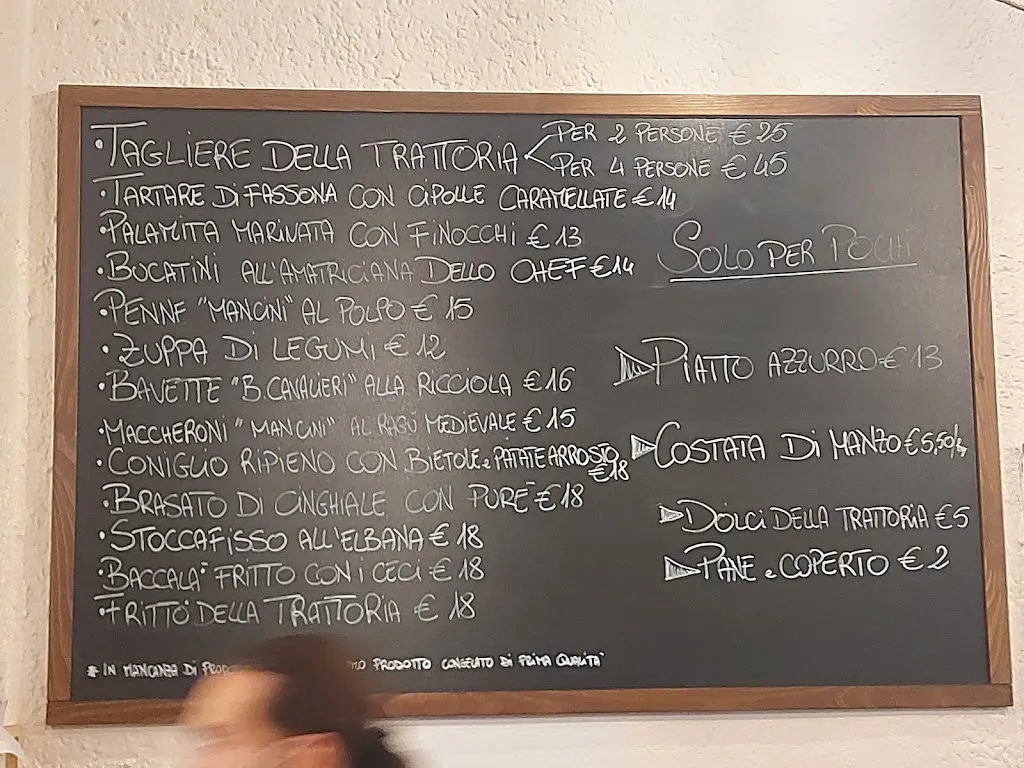 • TAGLIERE DELLA TRATTORIA < PER 2 PERSONE € 25
PER 4 PERSONE € 45
• TARTARE DI FASSONA CON CIPOLLE CARAMELLATE € 14
• PALAMITA MARINATA CON FINOCCHI € 13
• BUCATINI ALL'AMATRICIANA DELLO CHEF € 14
• PENNE "MANCINI" AL POLPO € 15
• ZUPPA DI LEGUMI € 12
• BAVETTE "B.CAVALIERI" ALLA RICCIOLA € 16
• MACCHERONI "MANCINI" AL RAGÙ MEDIEVALE € 15
• CONIGLIO RIPIENO CON BIETOLE e PATATE ARROSTO
€ 18
• BRASATO DI CINGHIALE CON PURE' € 18
• STOCCAFISSO ALL'ELBANA € 18
• BACCALA' FRITTO CON I CECI € 18
• FRITTO DELLA TRATTORIA € 18
SOLO PER POCHI
PIATTO AZZURRO € 13
COSTATA DI MANZO € 5,50/hg
DOLCI DELLA TRATTORIA € 5
PANE e COPERTO € 2
* IN MANCANZA DI PRODOTTO CONGELATO DI PRIMA QUALITA'